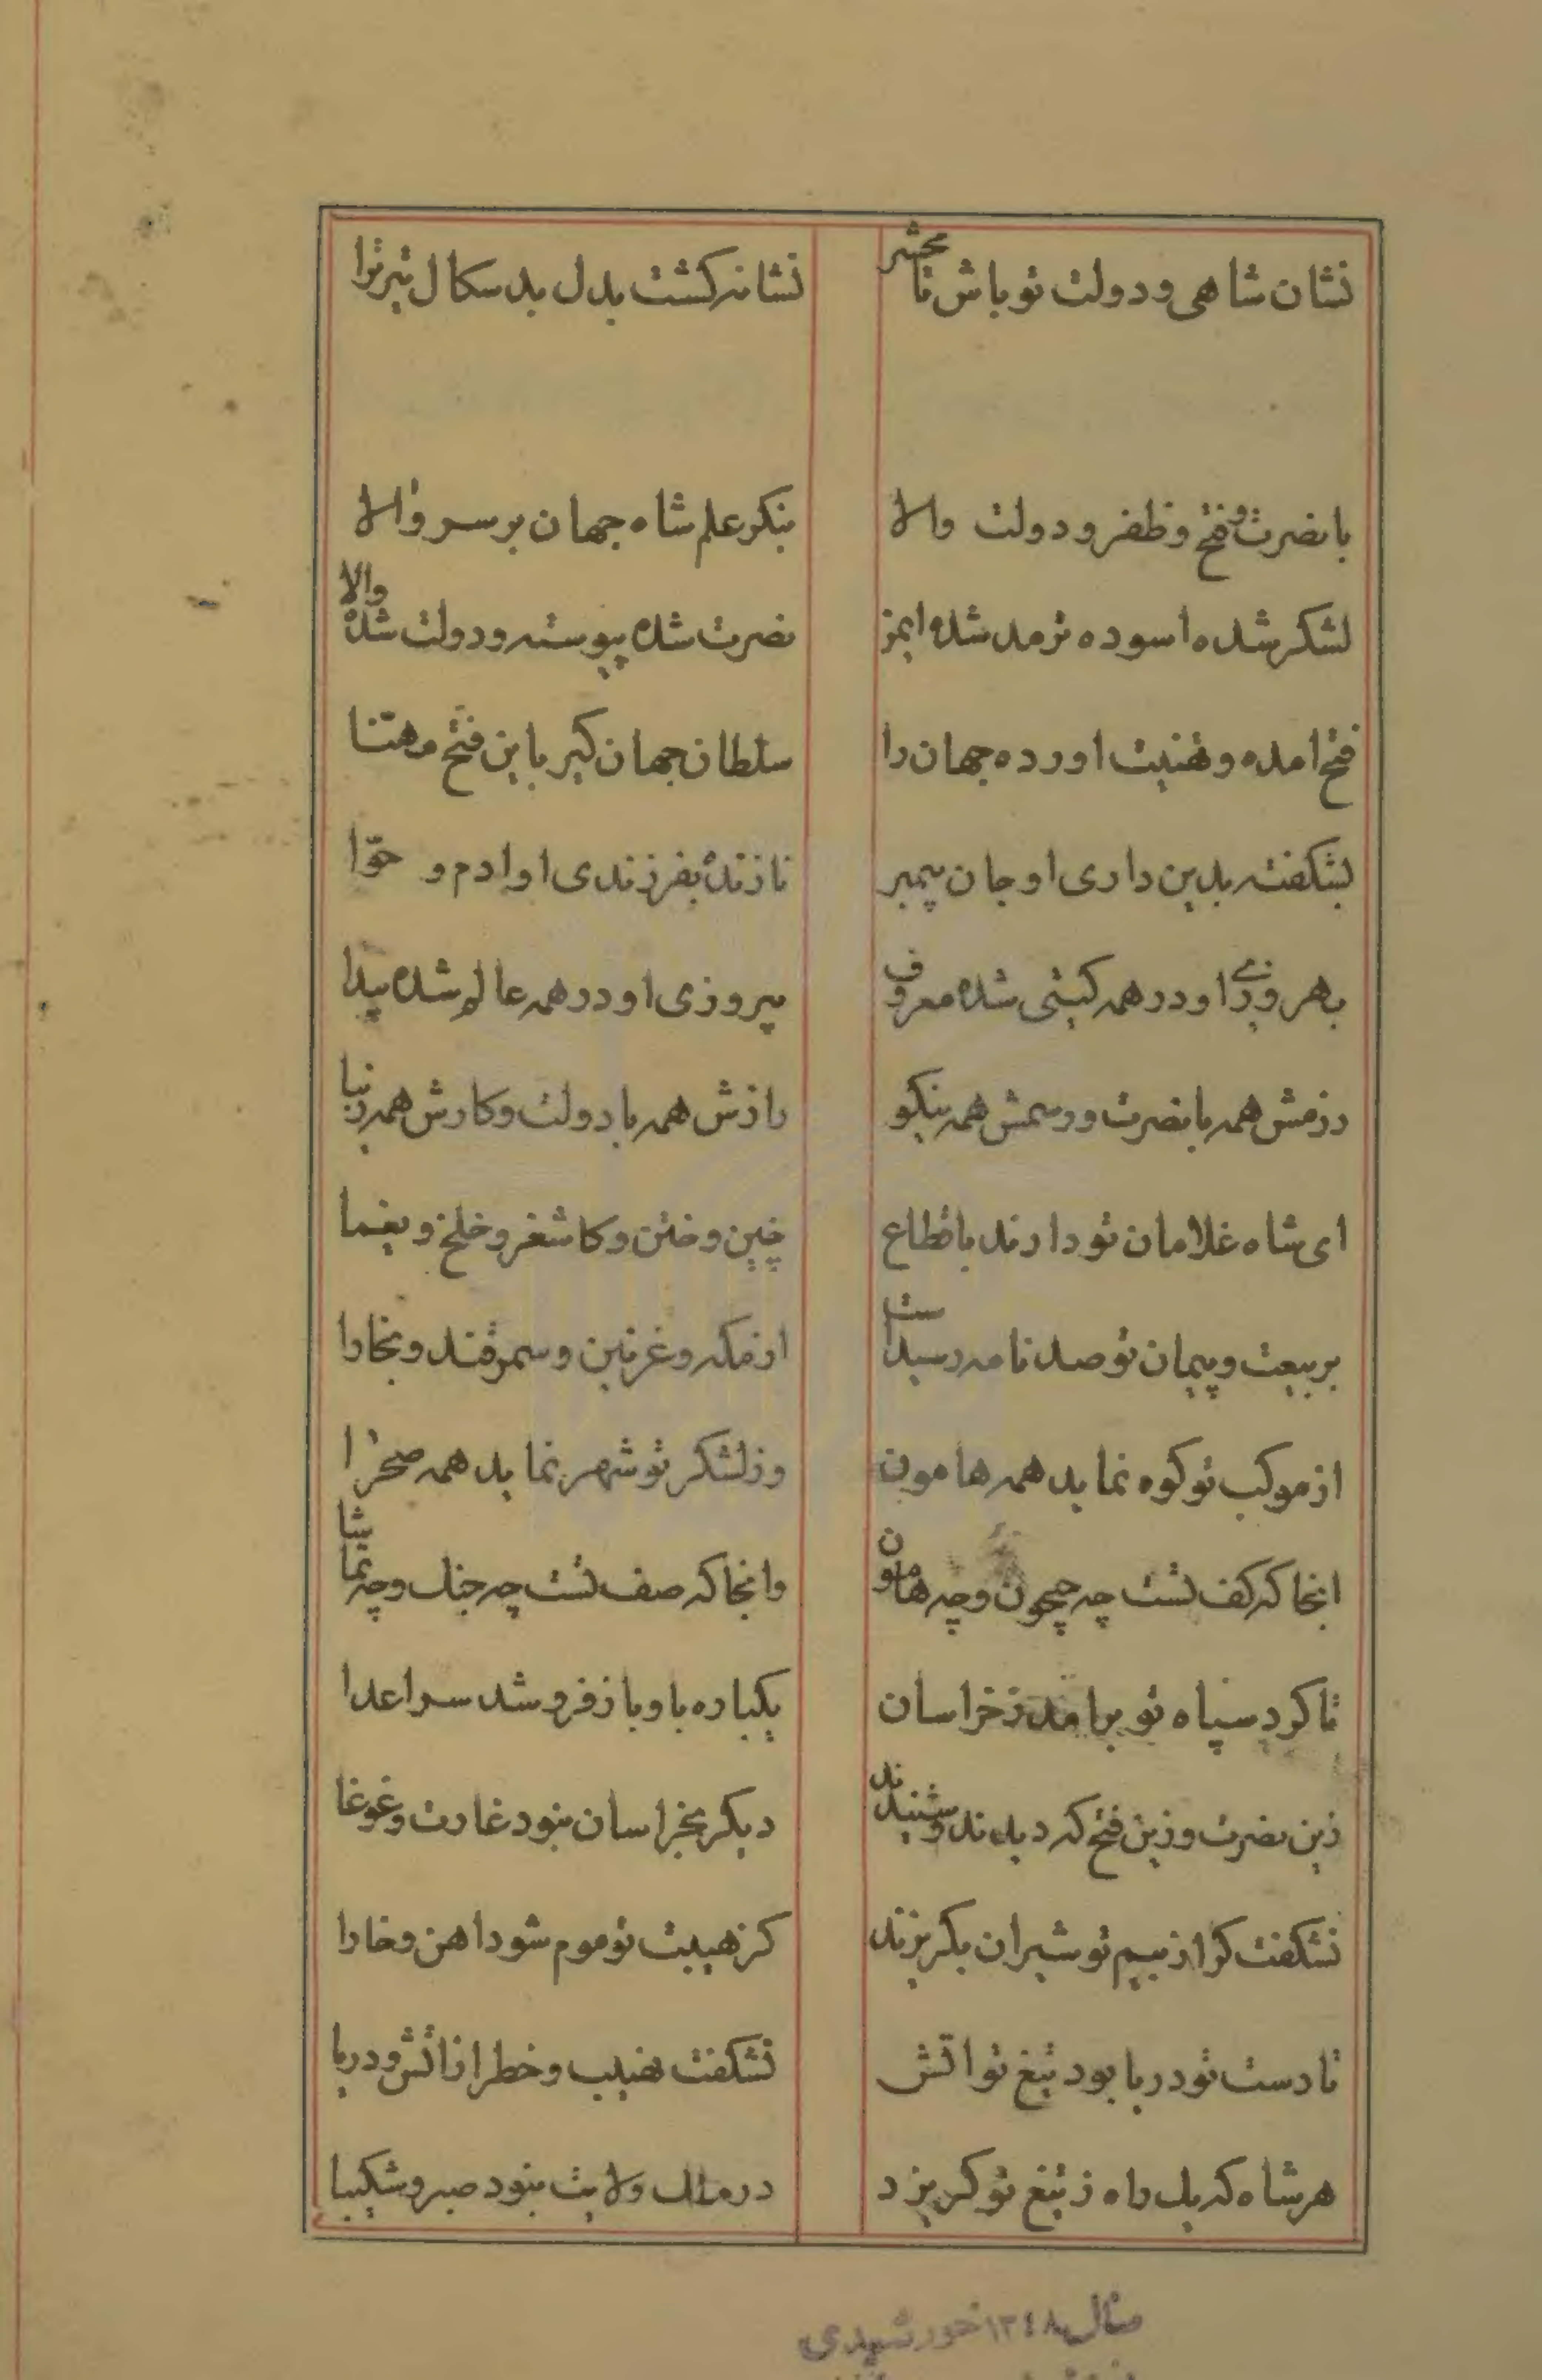 نشان شاهی و دولت تو باش تا محشر نشانه کشت بدل بد سکال تیر ترا
با نصرت و فتح و ظفر و دولت والا بنکر علم شاه جهان بر سر والا
لشکر شده اسوده ترمد شده ایمن نصرت شده پیوسته و دولت شده والا
فتح امده و تهنیت اورده جهان را سلطان جهان کیر باین فتح مهنا
بشکفته بدین داری او جان پیمبر نازنده بفرزندی او ادم و حوّا
بهروزی او در همه کیتی شده معروف پیروزی او در همه عالم شده پیدا
رزمش همه با نصرت و رسمش همه نیکو رازش همه با دولت و کارش همه زیبا
ای شاه غلامان تو دارند باقطاع چین و ختن و کاشغر و خلخ و یغما
بر بیعت و پیمان تو صد نامه رسیدست از مکه و غزنین و سمرقند و بخارا
از موکب تو کوه نماید همه هامون وز لشکر تو شهر نماید همه صحرا
انجا که کف تست چه جیحون و چه هامون وانجا که صف تست چه جنک و چه تماشا
تا کرد سپاه تو برامد ز خراسان یکباره باوباز فرو شد سر اعدا
زین نصرت و زین فتح که دیدند و شنیدند دیکر بخراسان نبود غارت و غوغا
نشکفت کر از بیم تو شیران بکریزند کز هیبت تو موم شود اهن و خارا
تا دست تو دریا بود تیغ تو اتش نشکفت نهیب و خطر از اتش و دریا
هر شاه که یک راه ز تیغ تو کریزد در ملک ولایت نبود صبر و شکیبا
سال ۱۳٤۸ خورشیدی